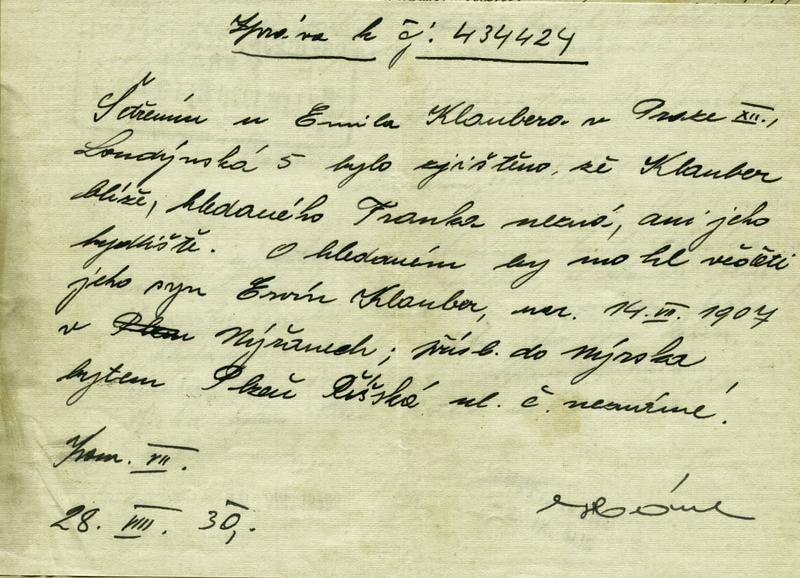 Zpráva k čj. 434424
Šetřením u Emila Klaubera v Praze XII.,
Londýnská 5 bylo zjištěno, že Klauber
blíže, hledaného Franka nezná, ani jeho
bydliště. O hledaném by mohl věděti
jeho syn Ervín Klauber, nar. 14.VII. 1907
v Plzni Nýřanech; přísl. do Nýrska
bytem Plzeň Říšská ul. č. neznámé.
Kom. VII.
28. VIII. 30,